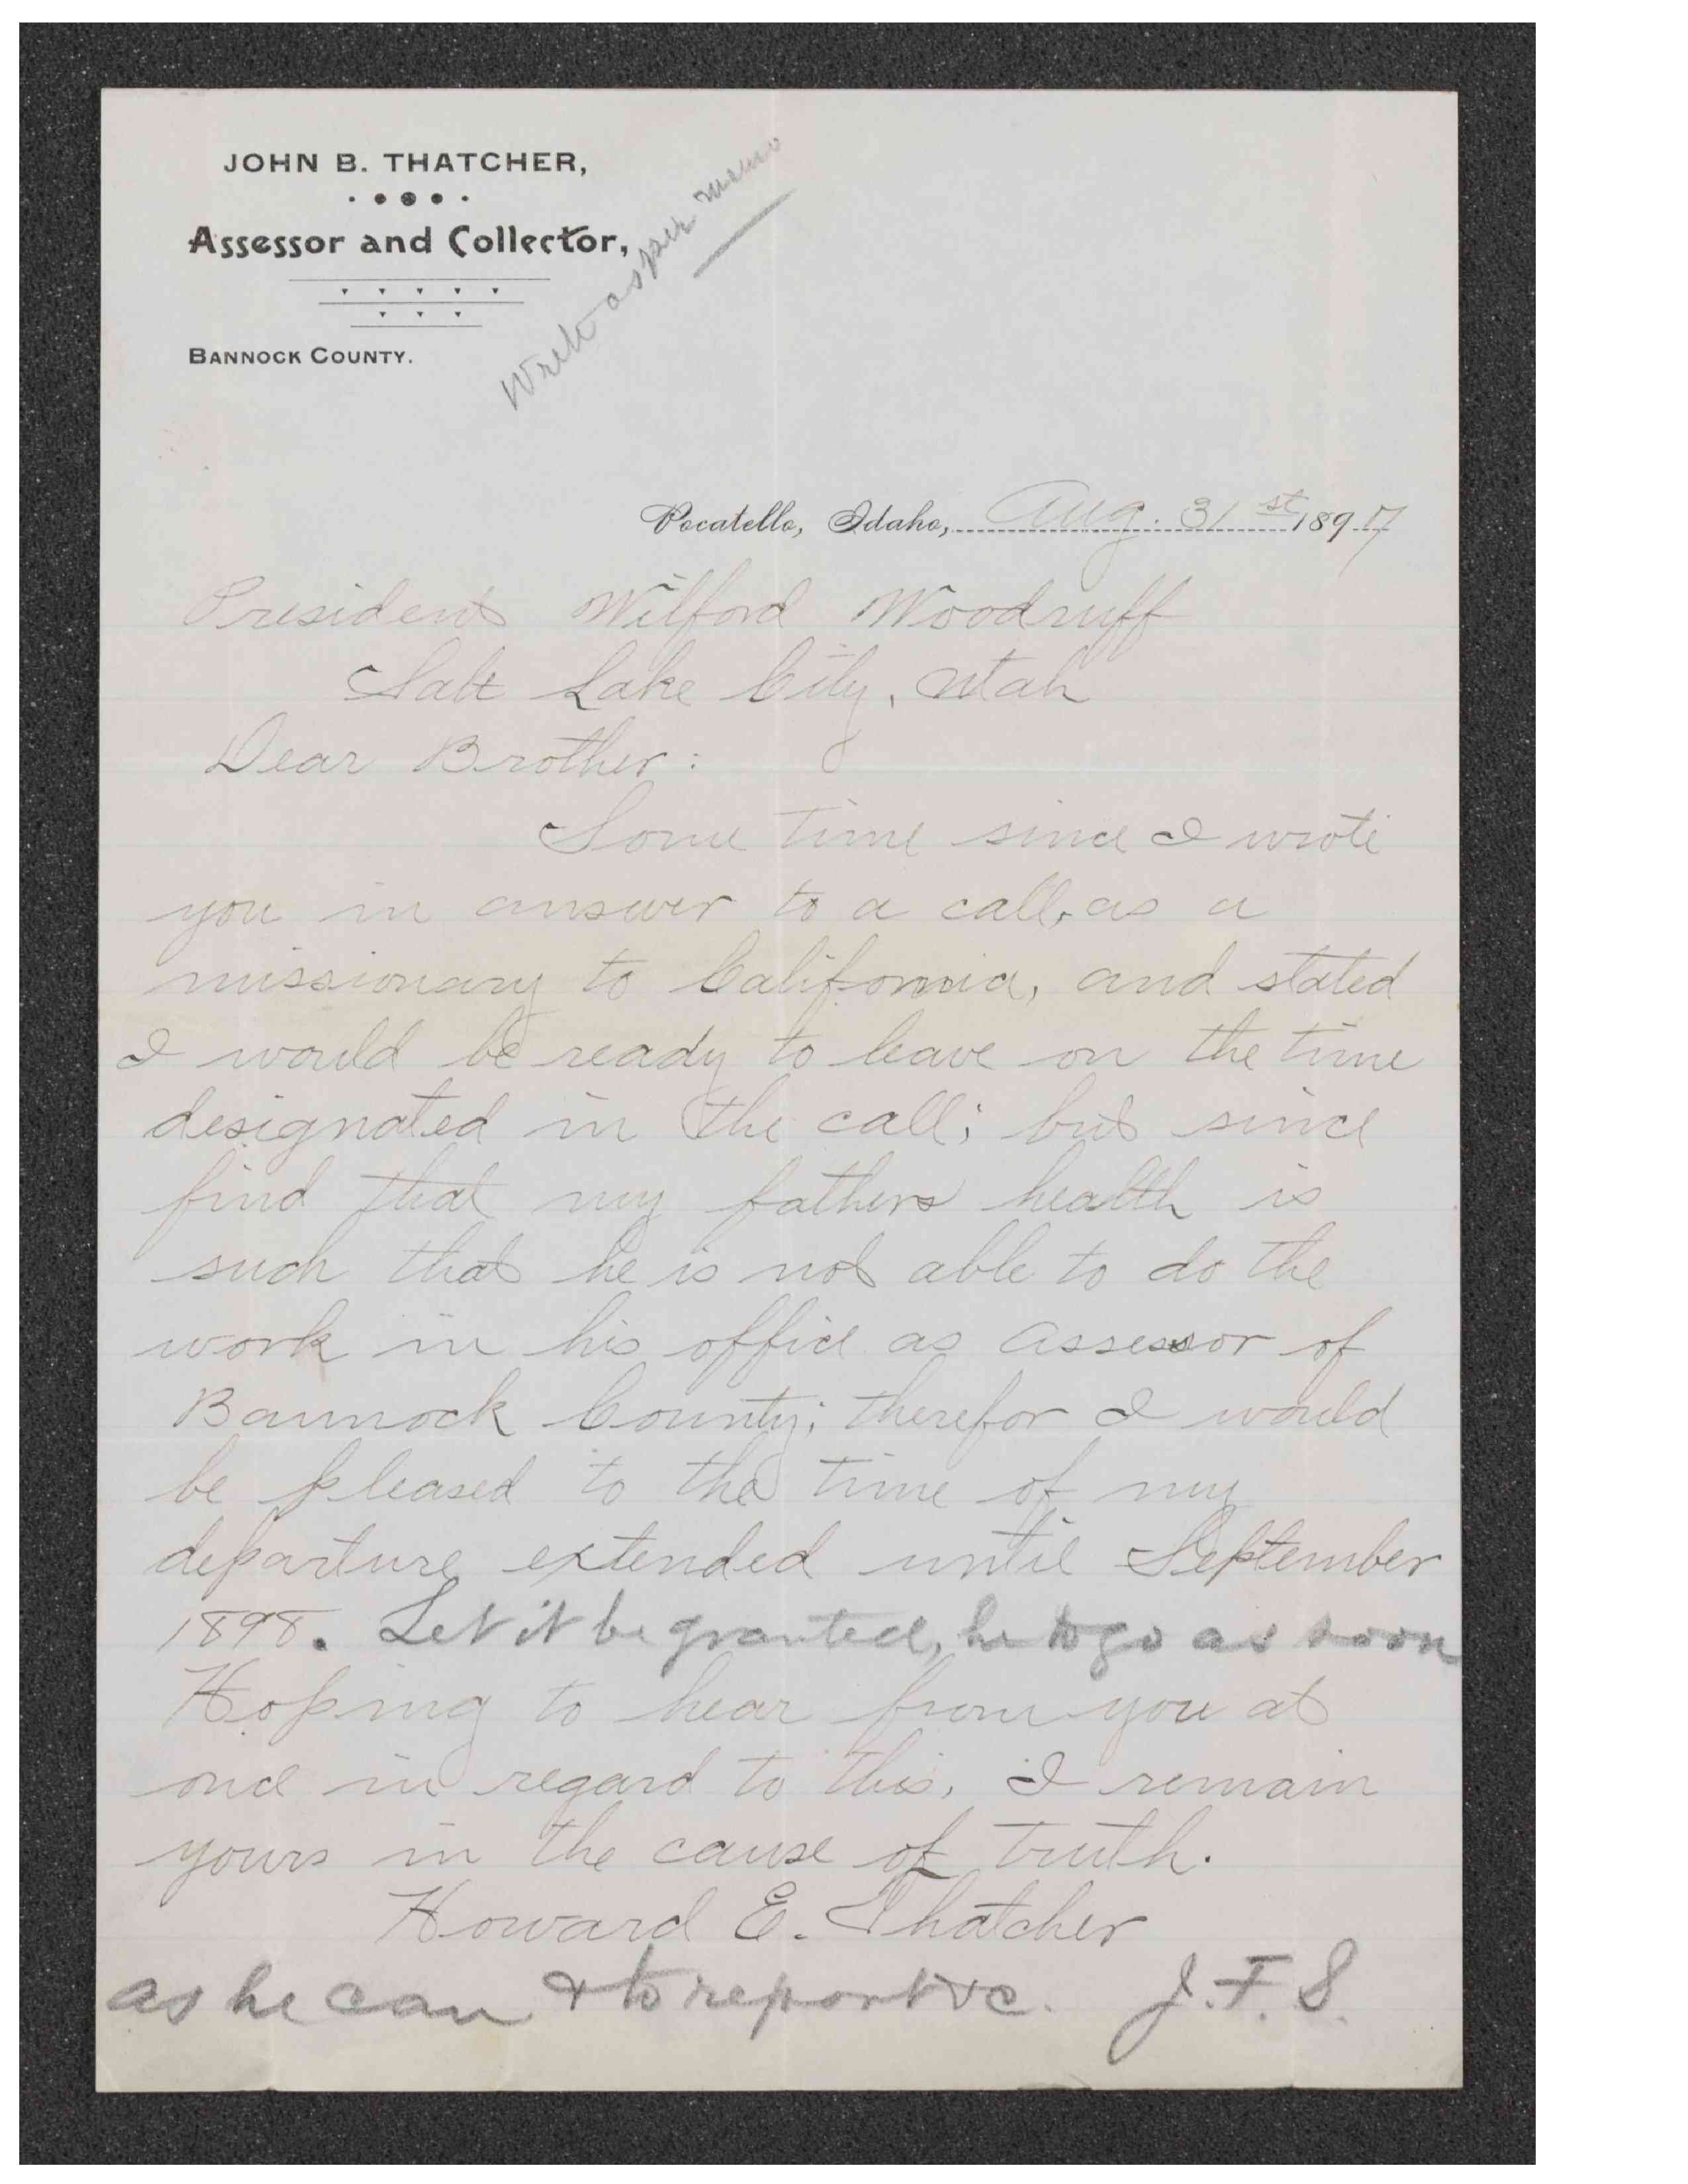 JOHN B. THATCHER,
Assessor and Collector,
BANNOCK COUNTY.
Write as per memo
Pocatello, Idaho, Aug. 31st 1897
President Wilford Woodruff
Salt Lake City, Utah
Dear Brother:
Some time since I wrote
you in answer to a call, as a
missionary to California, and stated
I would be ready to leave on the time
designated in the call; but since
find that my fathers health is
such that he is not able to do the
work in his office as assessor of
Bannock County; therefor I would
be pleased to the time of my
departure extended until September
1898. Let it be granted, he to go as soon
Hoping to hear from you at
once in regard to this, I remain
yours in the cause of truth.
Howard E. Thatcher
as he can & to report &c. J.F.S.